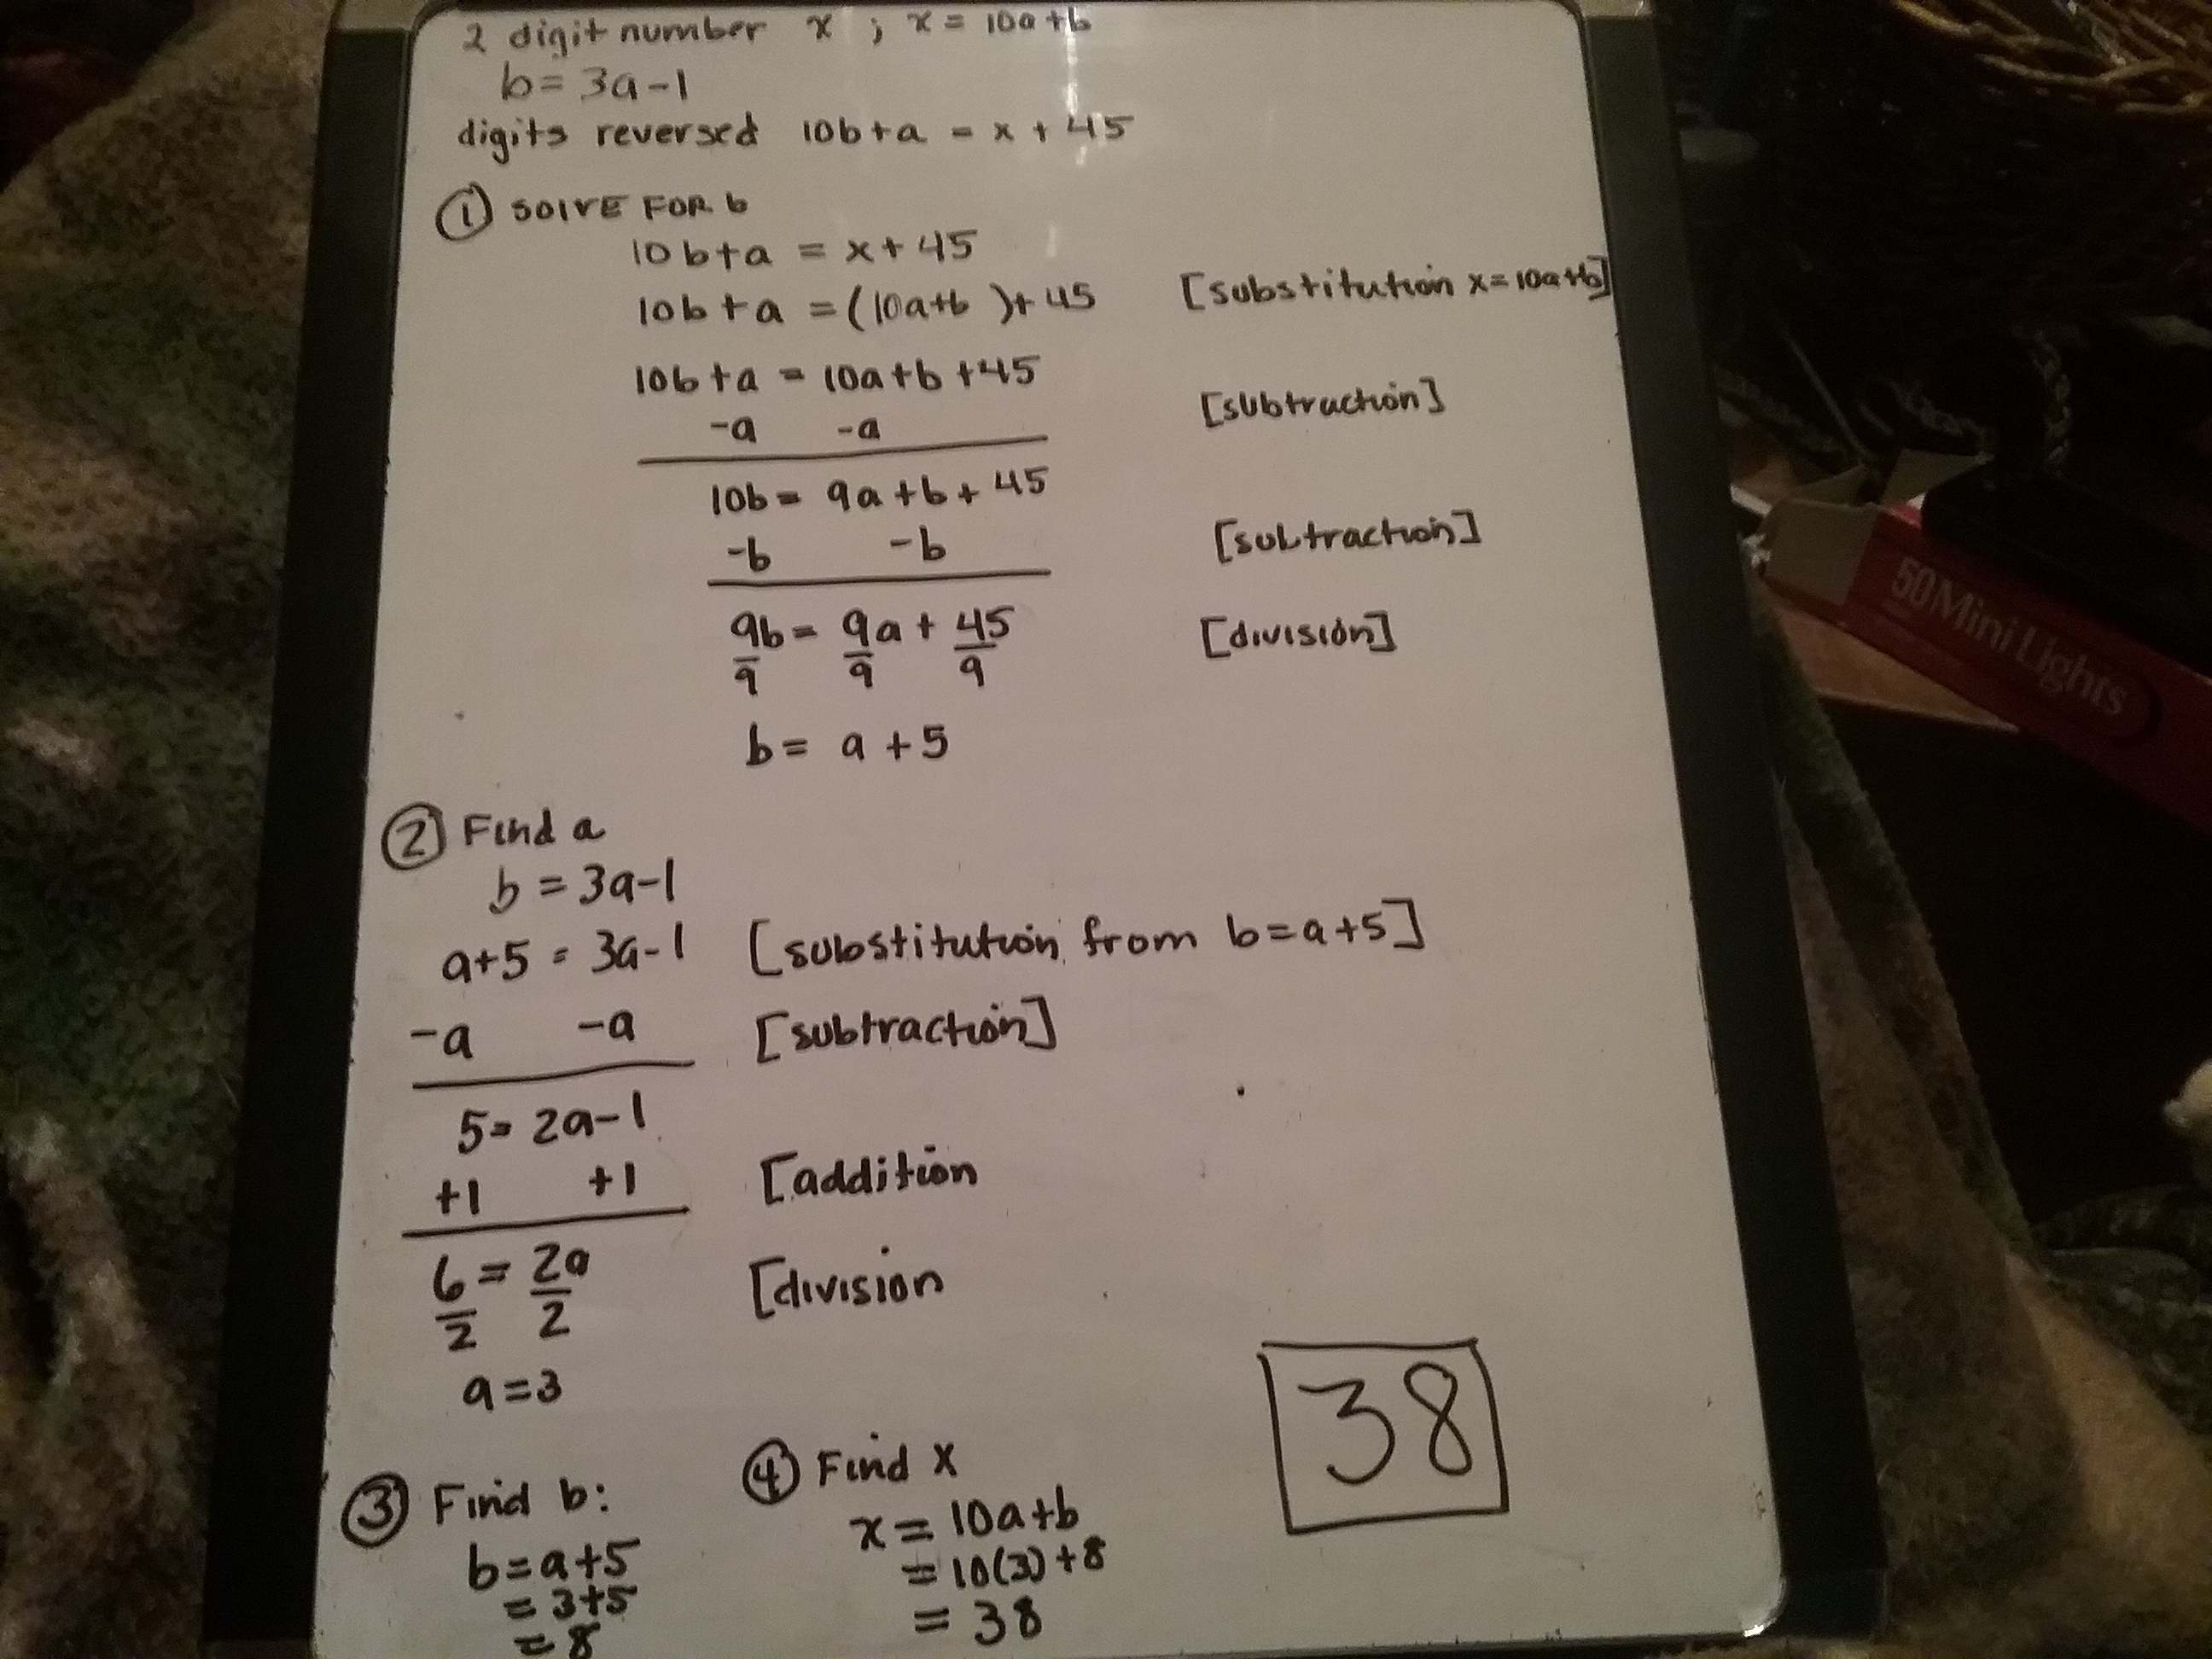 2 digit number x ; x = 10a+b
b= 3a-1
digits reversed 10b+a = x + 45
① SOLVE FOR b
10b+a = x+45
10b+a =(10a+b )+45 [substitution x=10a+b]
10b+a = 10a+b+45
-a -a [subtraction]
10b= 9a+b+45
-b -b [subtraction]
9b= 9a+ 45 [division]
9 9 9
b= a+5
② Find a
b=3a-1
a+5 = 3a-1 [substitution from b=a+5]
-a -a [subtraction]
5= 2a-1
+1 +1 [addition
6 = 2a [division
2 2
a=3
③ Find b:
b=a+5
= 3+5
= 8
④ Find x
x= 10a+b
= 10(3)+8
= 38
38
50 Mini Lights